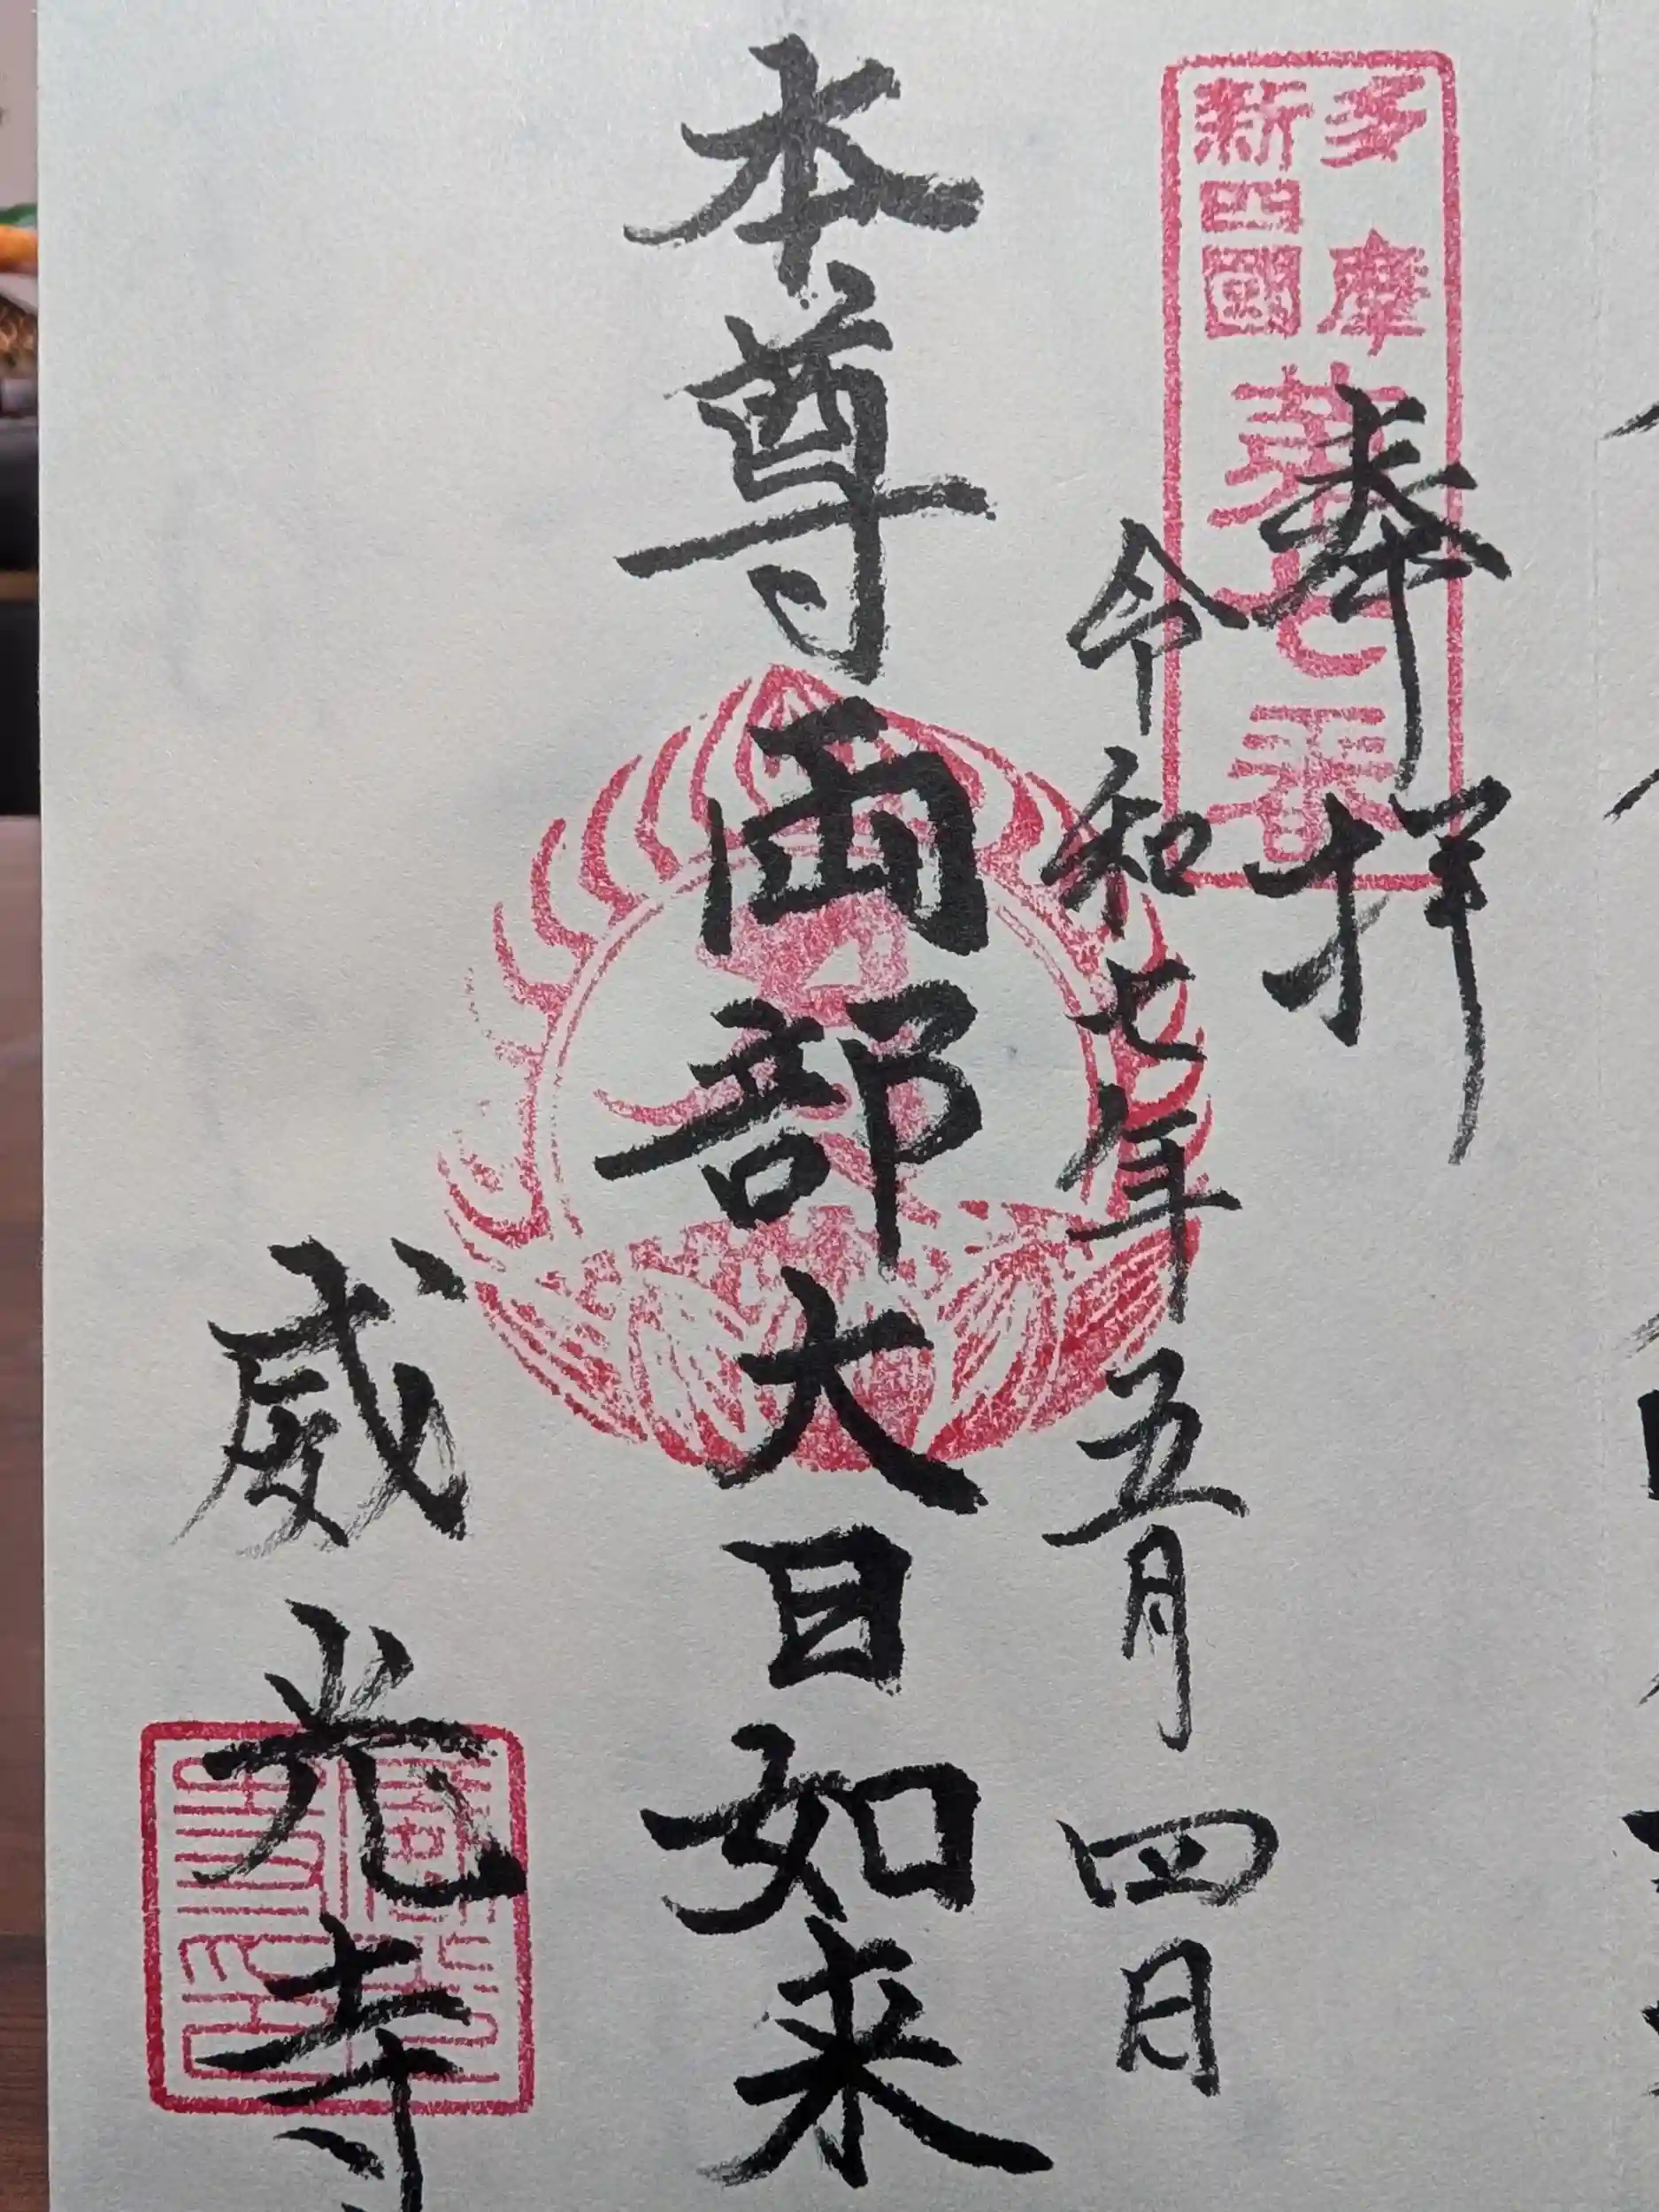 多摩
新四國
第七番
奉拝
令和七年五月四日
本尊両部大日如来
威光寺